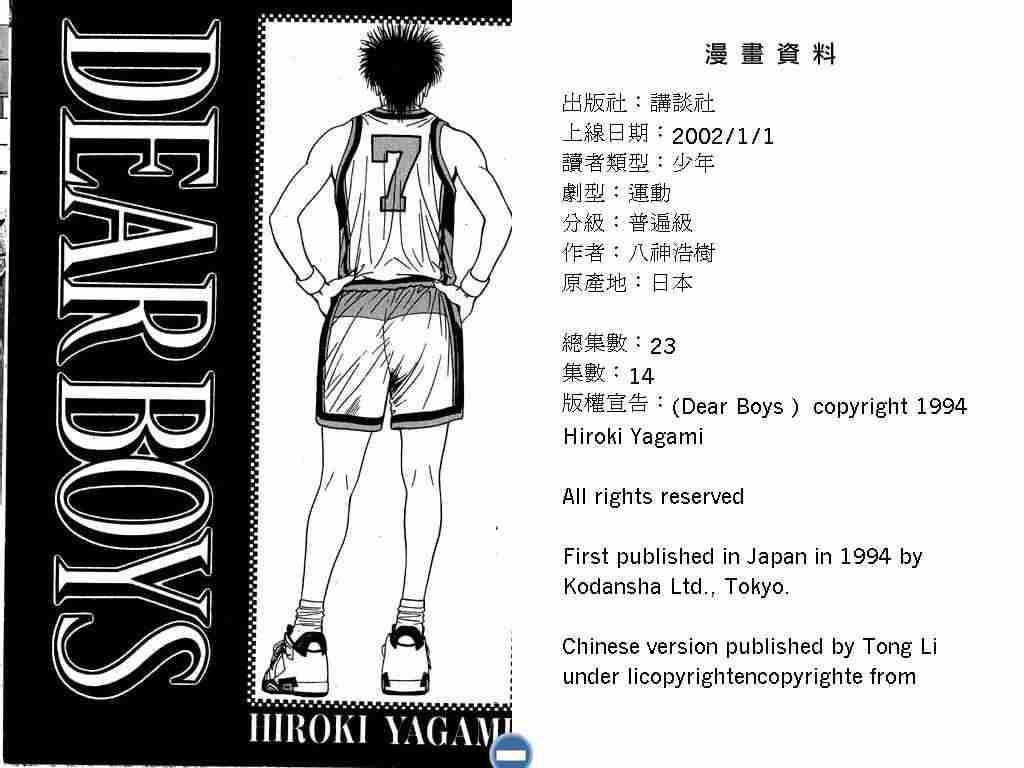 DEAR BOYS
7
HIROKI YAGAMI
漫畫資料
出版社：講談社
上線日期：2002/1/1
讀者類型：少年
劇型：運動
分級：普遍級
作者：八神浩樹
原產地：日本
總集數：23
集數：14
版權宣告：(Dear Boys ) copyright 1994
Hiroki Yagami
All rights reserved
First published in Japan in 1994 by
Kodansha Ltd., Tokyo.
Chinese version published by Tong Li
under licopyrightencopyrighte from